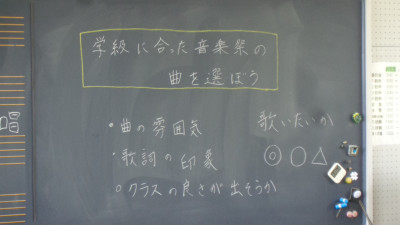 学級に合った音楽祭の
曲を選ぼう
・曲の雰囲気
・歌詞の印象
○クラスの良さが出そうか
歌いたいか
◎○△
唱